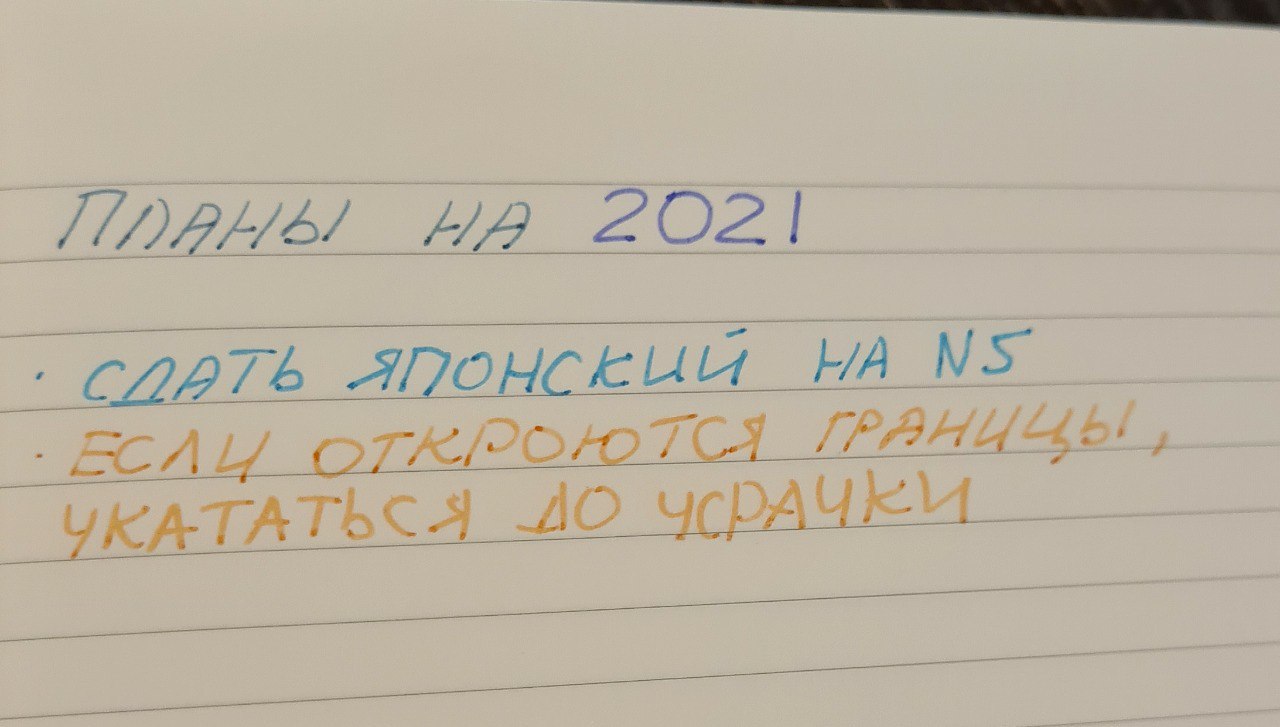 ПЛАНЫ НА 2021
· СДАТЬ ЯПОНСКИЙ НА N5
· ЕСЛИ ОТКРОЮТСЯ ГРАНИЦЫ,
УКАТАТЬСЯ ДО УСРАЧКИ